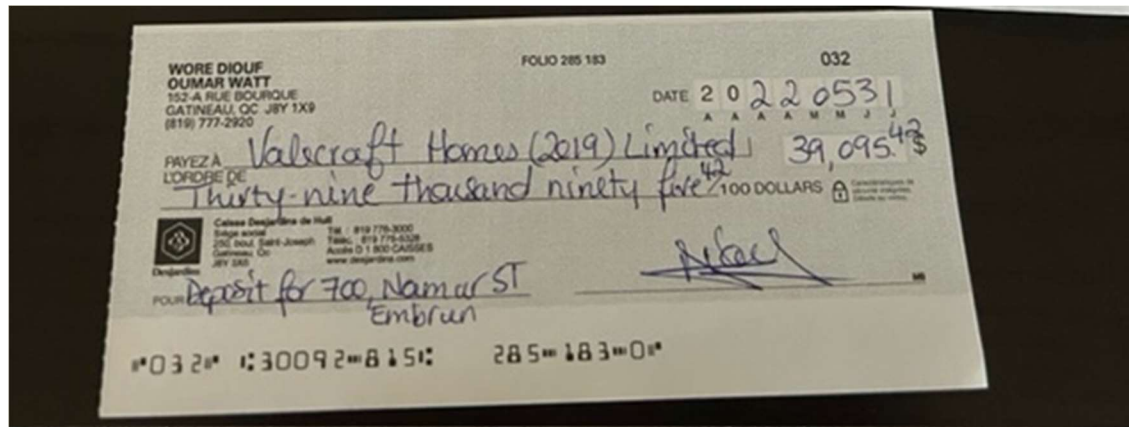 WORE DIOUF
OUMAR WATT
152-A RUE BOURQUE
GATINEAU, QC J8Y 1X9
(819) 777-2920
FOLIO 285 183
032
DATE 2 0 2 2 0 5 3 1
A A A A M M J J
PAYEZ À L'ORDRE DE Valecraft Homes (2019) Limited 39,095.42 $
Thirty-nine thousand ninety five 42/100 DOLLARS
Caractéristiques de sécurité intégrées. Détails au verso.
Desjardins
Caisse Desjardins de Hull
Siège social
250, boul. Saint-Joseph
Gatineau, Qc
Tél. : 819 776-3000
Accès D 1 800 CAISSES
www.desjardins.com
POUR Deposit for 700, Namur ST
Embrun
MB
⑈032⑈ ⑆30092⑉815⑆ 285⑉183⑉0⑈